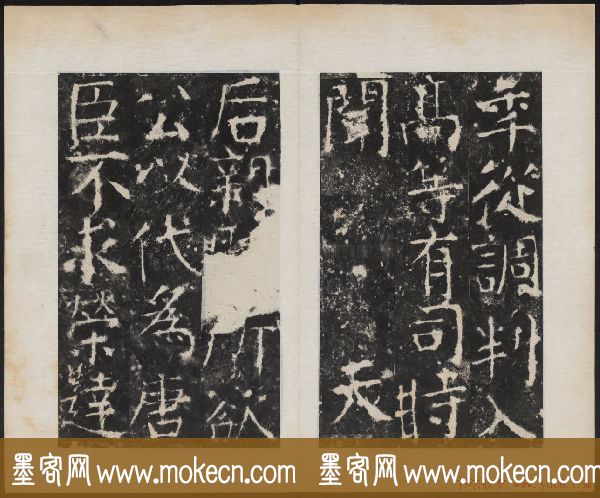 年從調判入
高等有司時
聞 天
后親 所欲
公以代為唐
臣不求榮達
墨客网www.mokecn.com
墨客网www.mokecn.com